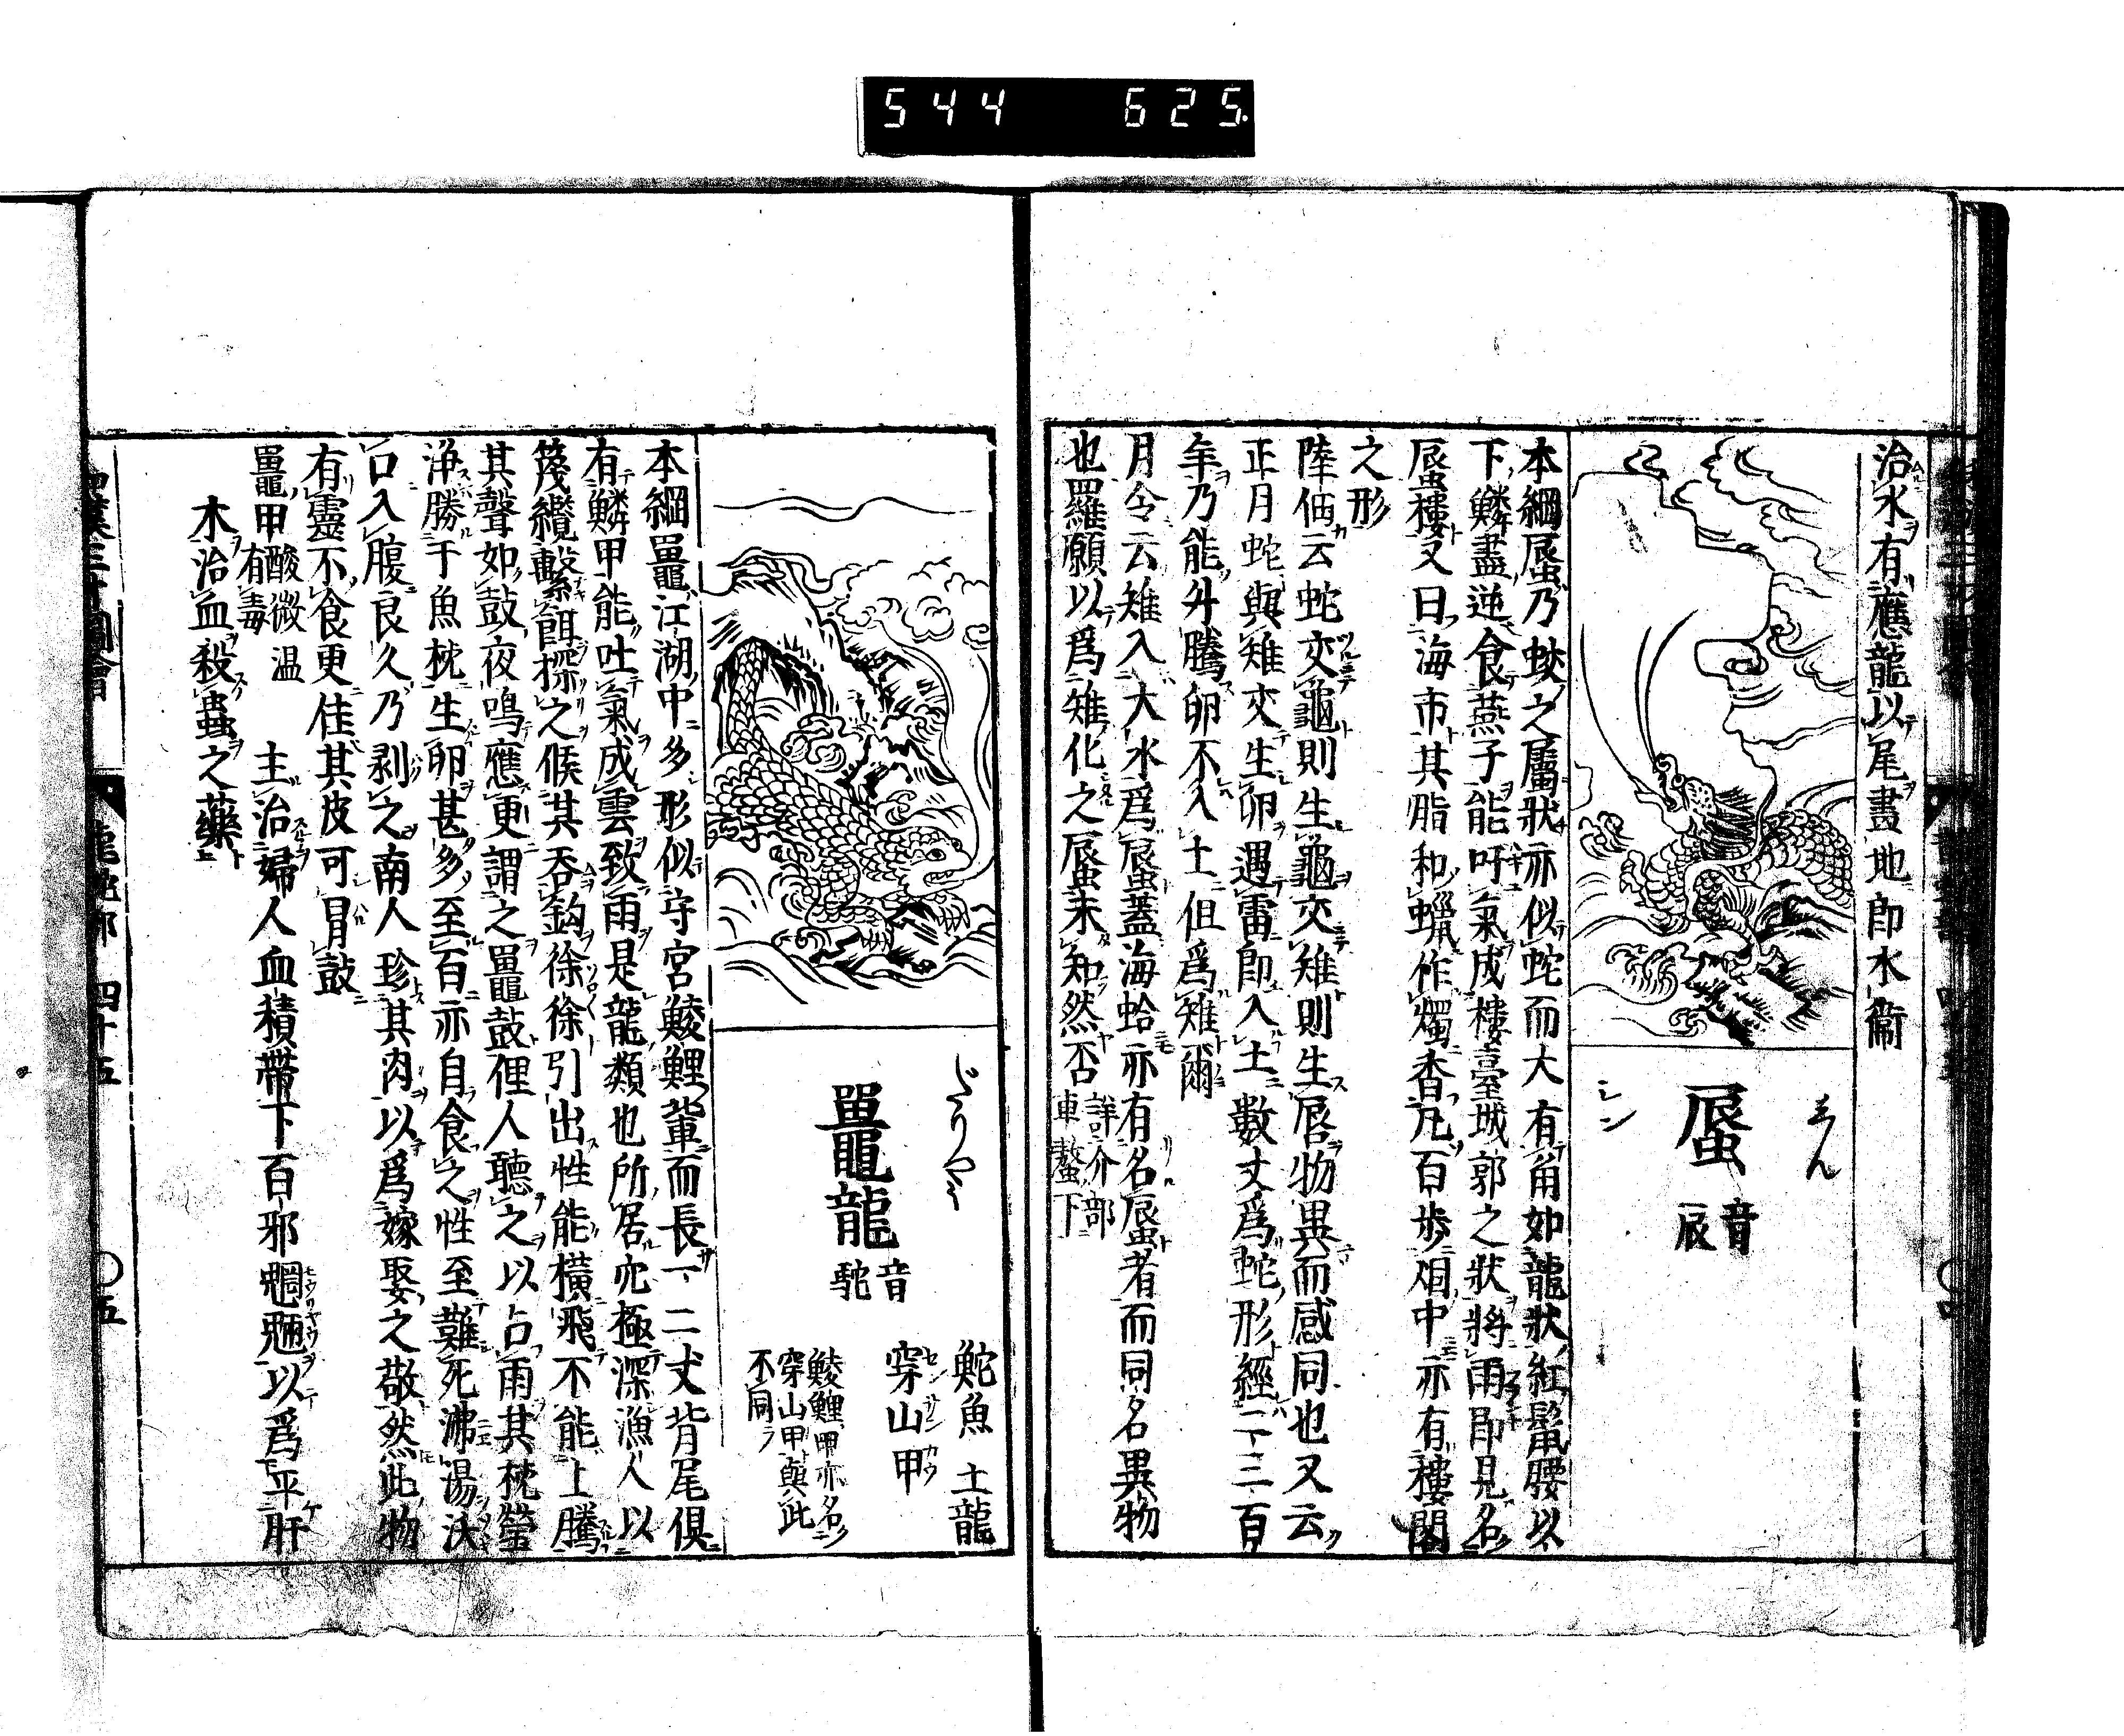 544 625
治水有應龍以尾畫地即水衞
しん
蜃
音辰
シン
本綱蜃乃蛟之屬狀亦似蛇而大有角如龍狀紅鬣腰以
下鱗盡逆食燕子能吁氣成樓臺城郭之狀將雨即見名
蜃樓又曰海市其脂和蠟作燭香凡百歩烟中亦有樓閣
之形
陸佃云蛇交龜則生龜交雉則生蜃物異而感同也又云
正月蛇與雉交生卵遇雷即入土數丈爲蛇形經二三百
年乃能升騰卵不入土但爲雉爾
月令云雉入大水爲蜃蓋海蛤亦有名蜃者而同名異物
也羅願以爲雉化之蜃未知然否詳介部車螯下
鼉龍
音駝
鮀魚 土龍
穿山甲
センサンカウ
鯪鯉甲亦名
穿山甲與此
不同
本綱鼉江湖中多形似守宮鯪鯉輩而長一二丈背尾俱
有鱗甲能吐氣成雲致雨是龍類也所居穴極深漁人以
篾纜繫餌探之候其吞鈎徐徐引出性能橫飛不能上騰
其聲如鼓夜鳴應更謂之鼉鼓俚人聽之以占雨其枕瑩
淨勝于魚枕生卵甚多至百亦自食之性至難死沸湯沃
口入腹良久乃剥之南人珍其肉以爲嫁娶之敬然此物
有靈不食更佳其皮可冒鼓
鼉甲 酸微温有毒 主治婦人血積帶下百邪魍魎以爲平肝
木治血殺蟲之藥
龍蛇部 四十五
〇五